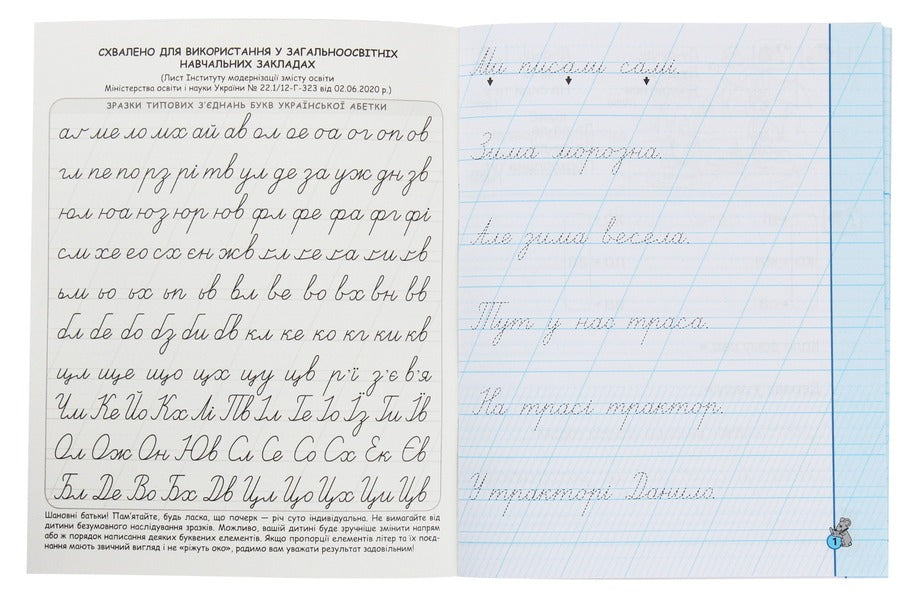 СХВАЛЕНО ДЛЯ ВИКОРИСТАННЯ У ЗАГАЛЬНООСВІТНІХ
НАВЧАЛЬНИХ ЗАКЛАДАХ
(Лист Інституту модернізації змісту освіти
Міністерства освіти і науки України № 22.1/12-Г-323 від 02.06.2020 р.)
ЗРАЗКИ ТИПОВИХ З'ЄДНАНЬ БУКВ УКРАЇНСЬКОЇ АБЕТКИ
ме ло мх ай ав ол ое оа ог оп ов
гл пе по рз рі тв ул де за уж дн зв
юл юа юз юр юв фл фе фа фг фі
см хе ео сх єн жв ґл ґе ґа ґи ґв
ьм ьо ьх ьп ьв вл ве во вх вн вв
бл бе бо бз би бв кл ке ко кг ки кв
щл ще що щх щу щв р'ї з'є в'я
Чи Ке Йо Кх Лі Пв Іл Ге Іо Їз Ги Їв
Ол Ож Он Юв Сл Се Со Сх Ек Єв
Бл Де Во Бх Дв Цл Цо Цх Ци Цв
Шановні батьки! Пам'ятайте, будь ласка, що почерк — річ суто індивідуальна. Не вимагайте від
дитини безумовного наслідування зразків. Можливо, вашій дитині буде зручніше змінити напрям
або ж порядок написання деяких буквених елементів. Якщо пропорції елементів літер та їх поєд-
нання мають звичний вигляд і не «ріжуть око», радимо вам уважати результат задовільним!
Ми писали самі.
Зима морозна.
Але зима весела.
Тут у нас траса.
На трасі трактор.
У тракторі Данило.
1